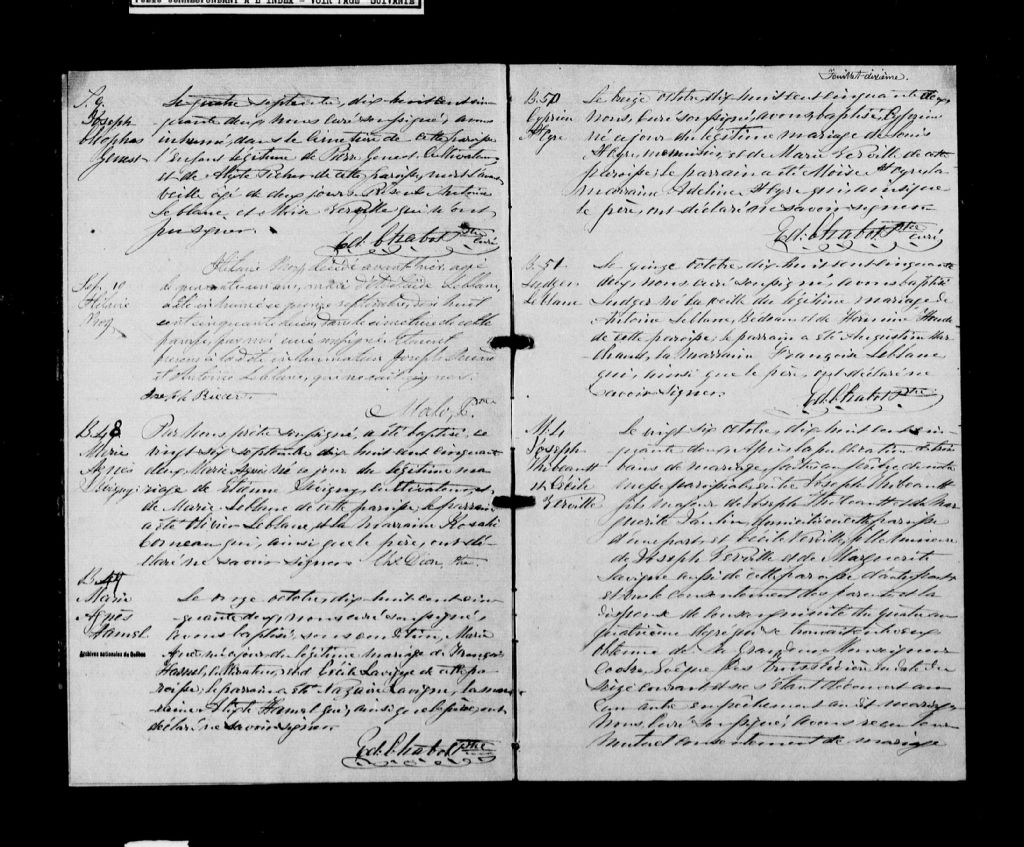 CORRESPONDANT A L'INDEX - VOIR PAGE SUIVANTE
S. 9.
Joseph
Cléophas
Genest
Le quatre septembre, dix huit cent cin-
quante deux, nous curé soussigné, avons
inhumé, dans le cimetière de cette paroisse
l'Enfant légitime de Pierre Genest Cultivateur
et de de cette paroisse, mort la
veille âgé de deux jours. Présents Antoine
Leblanc et Moïse Verville qui n'ont
pu signer.
Ed. Chabot Ptre
curé
Sep. 10
Hilaire
Hilaire décédé avant hier, agé
de quarante un an, marié d' Leblanc,
a été inhumé ce septembre, dix huit
cent cinquante deux, dans le cimetière de cette
paroisse, par moi curé soussigné. Etaient
présens à la dite inhumation Joseph
et Antoine Leblanc, qui ne sait signer.
Joseph
Malo, Ptre
B. 48
Marie
Agnès
Par Nous prêtre soussigné, a été baptisé, ce
vingt six septembre dix huit cent cinquante
deux, Marie Agnès née ce jour du légitime ma-
riage de Etienne cultivateur, et
de Marie Leblanc de cette paroisse. Le parrain
a été Leblanc et la marraine Rosalie
Corneau qui, ainsi que le père, ont dé-
claré ne savoir signer.
Chs Dion, Ptre
B. 49
Marie
Agnès
Hamel
Archives nationales du Québec
Le onze octobre, dix huit cent cin-
quante deux, nous curé soussigné,
avons baptisé, sous condition, Marie
née ce jour du légitime mariage de François
Hamel, cultivateur, et d'Esther Lavigne de cette pa-
roisse; le parrain a été Nazaire Lavigne, la mar-
raine Hamel qui, ainsi que le père, ont
déclaré ne savoir signer.
Ed. Chabot Ptre
Feuillet dixième.
B. 50
Cyprien
St Cyr
Le treize octobre, dix huit cent cinquante deux,
Nous, Curé soussigné, avons baptisé, Cyprien
né ce jour du légitime mariage de Louis
St Cyr, menuisier, et de Marie Verville de cette
paroisse; le parrain a été Moïse St Cyr, la
marraine Adeline St Cyr qui, ainsi que
le père, ont déclaré ne savoir signer.
Ed. Chabot Ptre
curé
B. 51
Ludger
Leblanc
Le quinze octobre, dix huit cent cinquante
deux, nous curé soussigné, avons baptisé
Ludger né la veille du légitime mariage de
Antoine Leblanc, Bedeau et de Hermine
de cette paroisse; le parrain a été Augustin
la marraine Françoise Leblanc
qui, ainsi que le père, ont déclaré ne
savoir signer.
Ed. Chabot Ptre
M. 10
Joseph
Thibeault
et Cécile
Verville
Le vingt six octobre, dix huit cent cin-
quante deux, Après la publication de trois
bans de mariage, faite au prône de notre
messe paroissiale entre Joseph Thibeault
fils majeur de Joseph Thibeault et de Mar-
guerite domicilié en cette paroisse
d'une part, et Cécile Verville, fille mineure
de Joseph Verville et de Marguerite
Lavigne aussi de cette paroisse d'autre part;
et vu le consentement des parents et la
dispense de consanguinité du quatre au
quatrième degré qui se trouvait entre eux,
obtenue de Sa Grandeur Monseigneur
Cooke, Evêque des Trois Rivières en date du
seize courant et ne s'étant découvert au-
cun autre empêchement au dit mariage
Nous, Curé soussigné, avons reçu leur
mutuel consentement de mariage